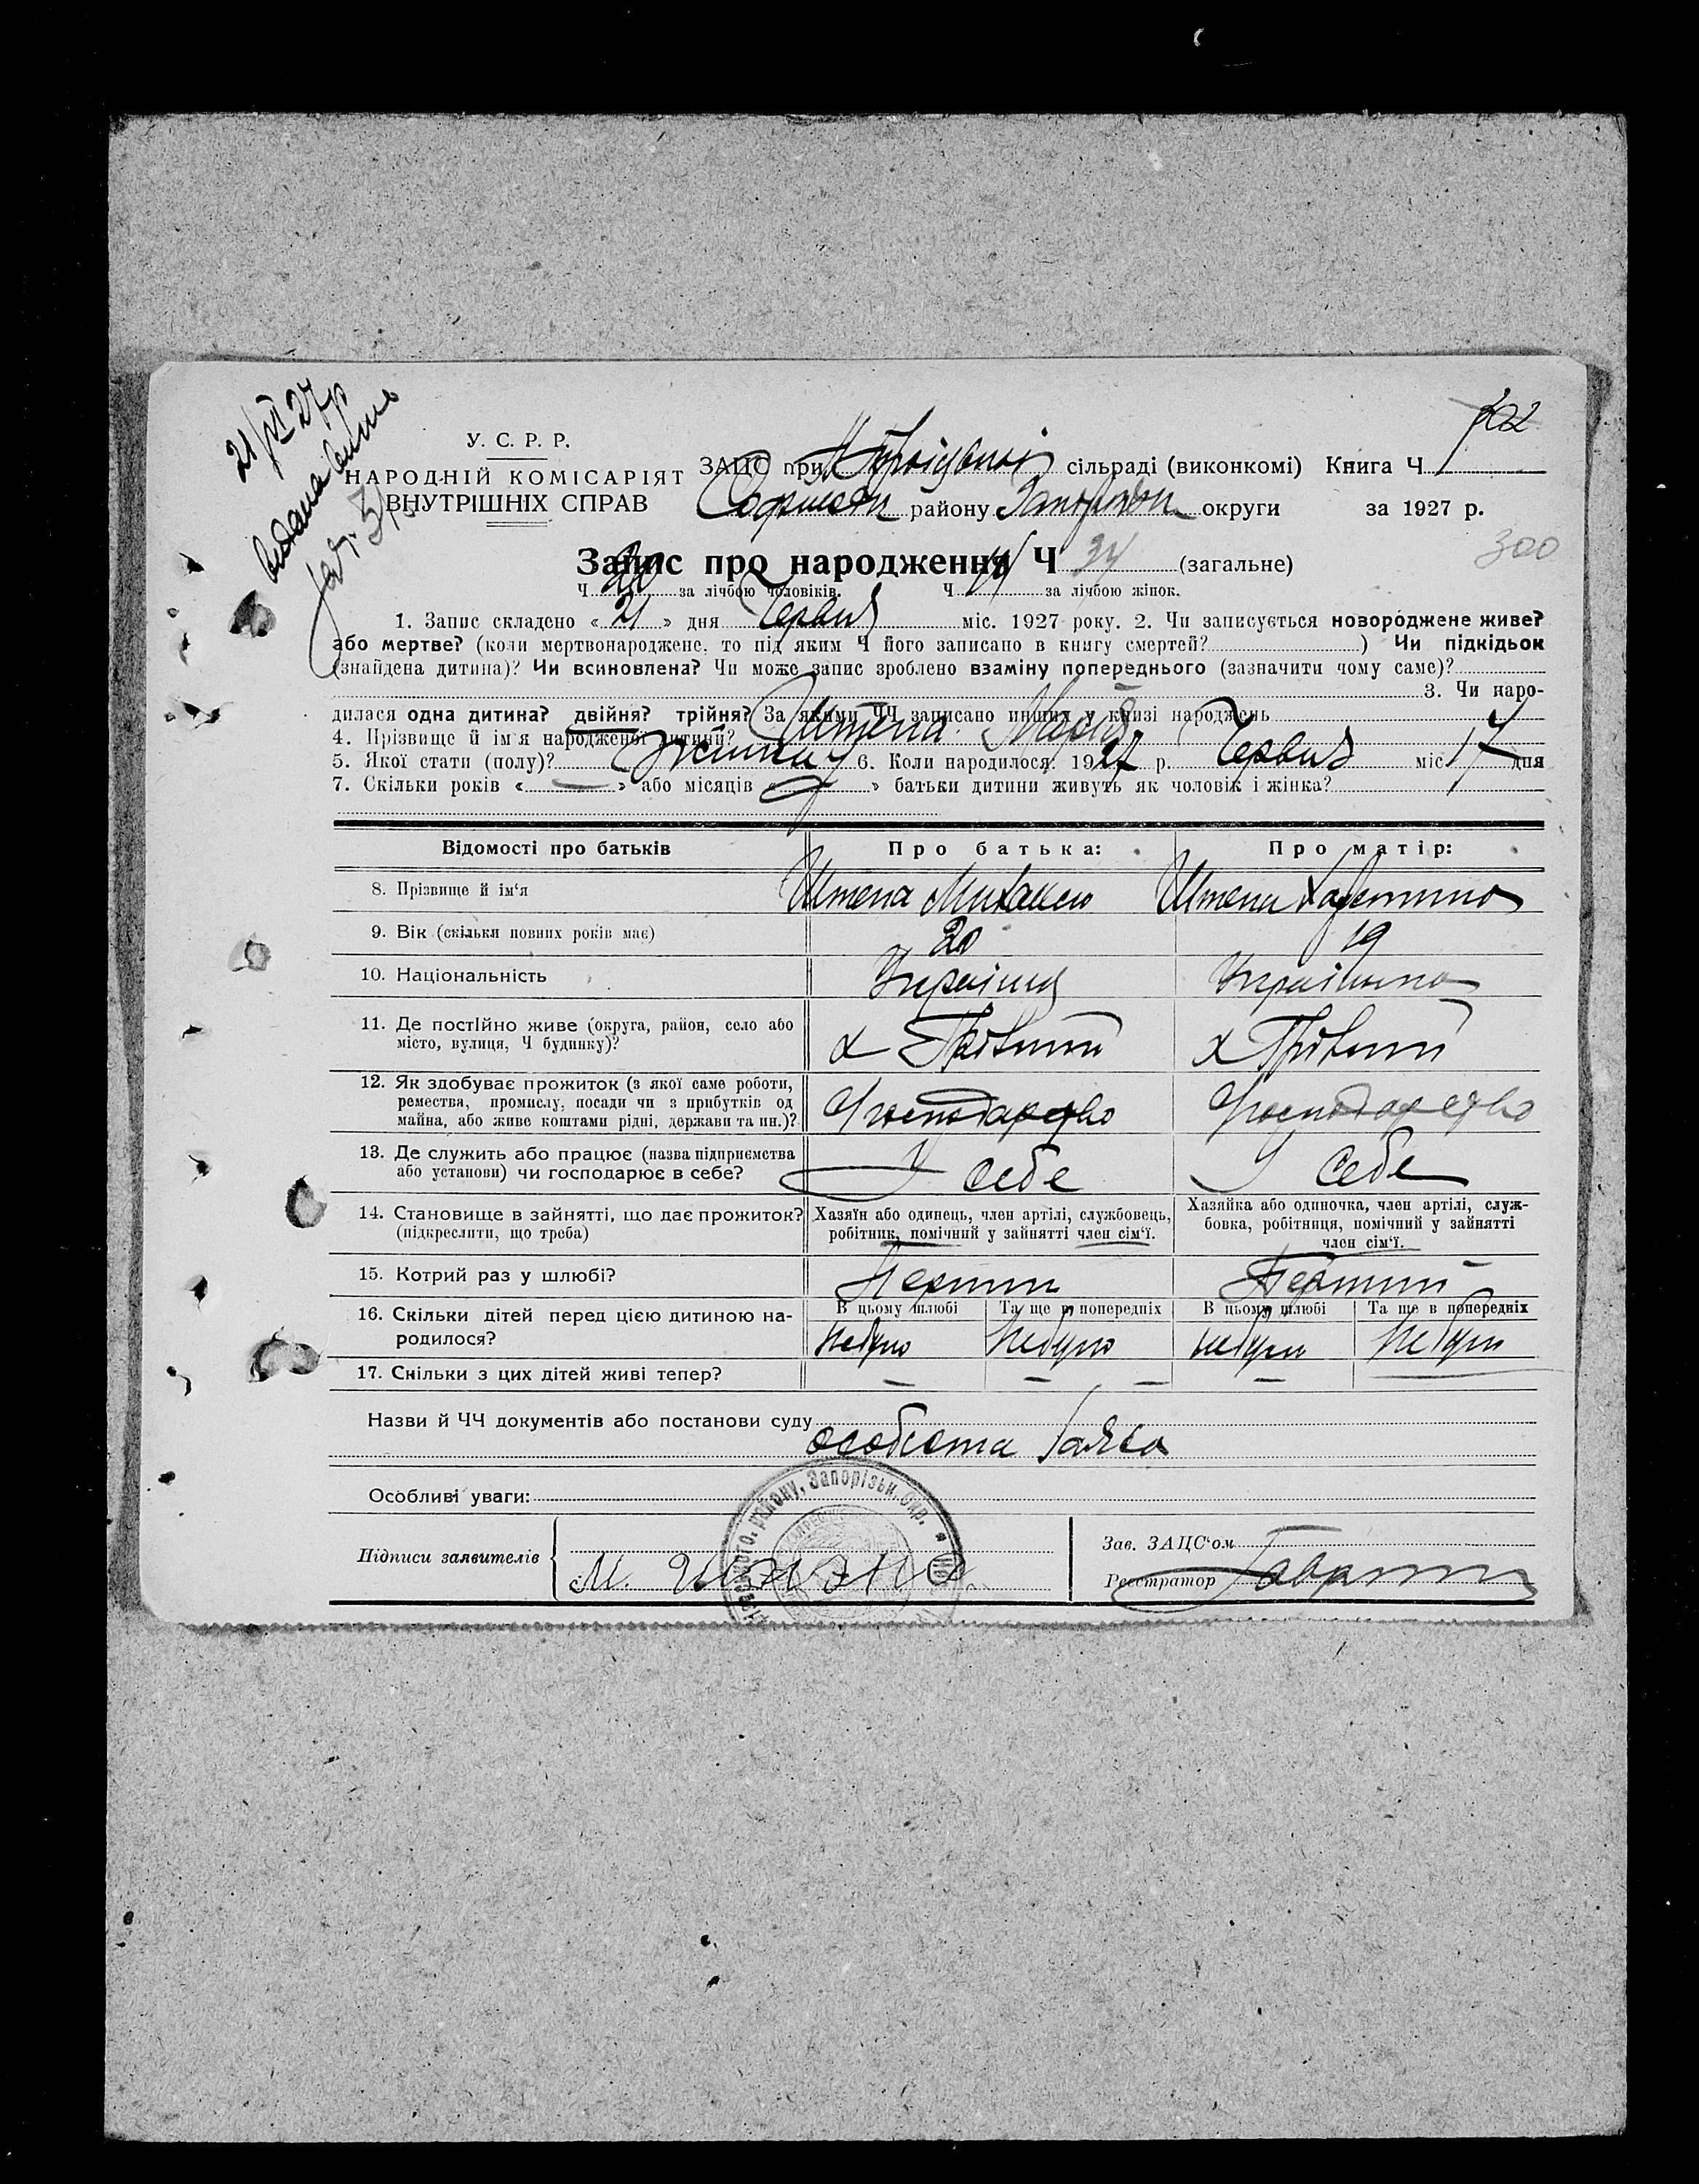 21/VI 27р
видана випис
У. С. Р. Р.
НАРОДНІЙ КОМІСАРІЯТ
ВНУТРІШНІХ СПРАВ
ЗАЦС при сільраді (виконкомі) Книга Ч
району округи за 1927 р.
300
Запис про народження Ч 34 (загальне)
Ч 20 за лічбою чоловіків. Ч 14 за лічбою жінок.
1. Запис складено « 21 » дня Червня міс. 1927 року. 2. Чи записується новороджене живе?
або мертве? (коли мертвонароджене, то під яким Ч його записано в книгу смертей? ) Чи підкідьок
(знайдена дитина)? Чи всиновлена? Чи може запис зроблено взаміну попереднього (зазначити чому саме)?
3. Чи наро-
дилася одна дитина? двійня? трійня? За якими ЧЧ записано инших у книзі народжень
4. Прізвище й ім'я народженої дитини? Штепа Марія
5. Якої стати (полу)? Жіночу 6. Коли народилося: 1927 р. Червня міс 17 дня
7. Скільки років « — » або місяців « » батьки дитини живуть як чоловік і жінка?
Відомості про батьків Про батька: Про матір:
8. Прізвище й ім'я Штепа Михайло Штепа Харитина
9. Вік (скільки повних років має) 20 19
10. Національність Українец Українка
11. Де постійно живе (округа, район, село або
місто, вулиця, Ч будинку)?
12. Як здобуває прожиток (з якої саме роботи,
ремества, промислу, посади чи з прибутків од
майна, або живе коштами рідні, держави та ин.)? Господарство Господарство
13. Де служить або працює (назва підприємства
або установи) чи господарює в себе? У себе У себе
14. Становище в зайнятті, що дає прожиток?
(підкреслити, що треба)
Хазяїн або одинець, член артілі, службовець,
робітник, помічний у зайнятті член сім'ї.
Хазяйка або одиночка, член артілі, служ-
бовка, робітниця, помічний у зайнятті
член сім'ї.
15. Котрий раз у шлюбі? Перший Перший
16. Скільки дітей перед цією дитиною на-
родилося?
В цьому шлюбі Та ще в попередніх В цьому шлюбі Та ще в попередніх
Небуло Небуло небуло Небуло
17. Скільки з цих дітей живі тепер? — — — —
Назви й ЧЧ документів або постанови суду
особиста заява
Особливі уваги:
району, Запорізьк. окр.
Підписи заявителів М. Штепа
Зав. ЗАЦС'ом
Реєстратор